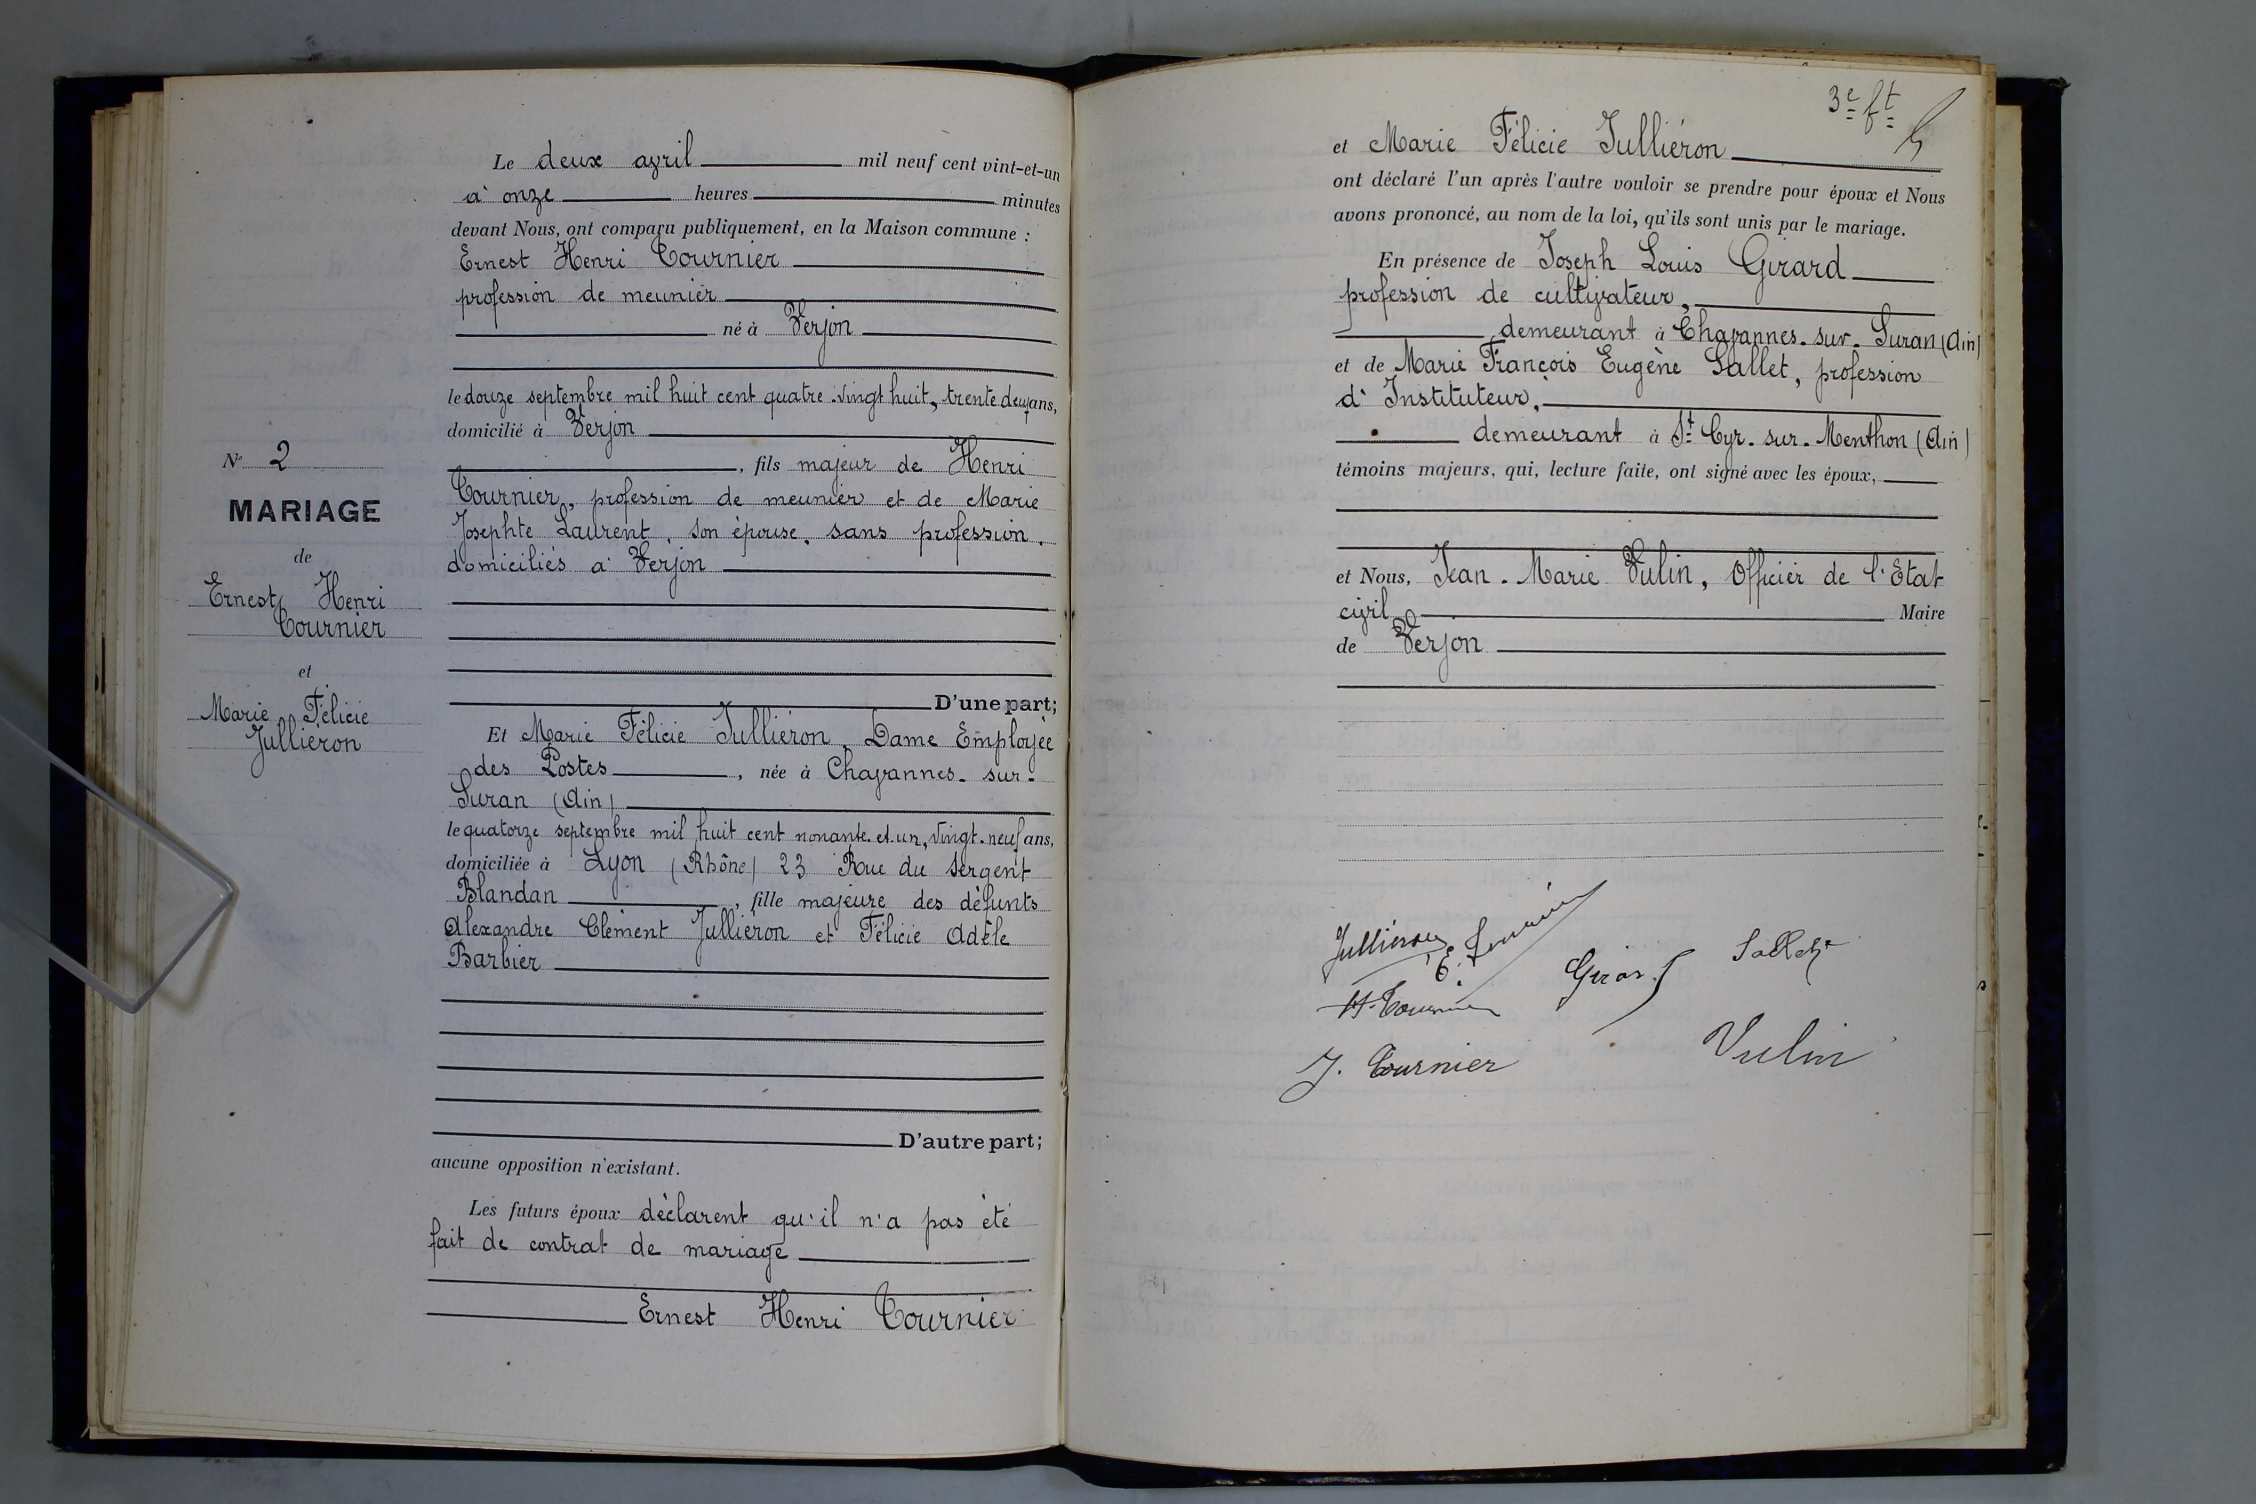 N° 2
MARIAGE
de
Ernest Henri
Tournier
et
Marie Félicie
Jullièron
Le deux avril mil neuf cent vint-et-un
à onze heures minutes
devant Nous, ont comparu publiquement, en la Maison commune :
Ernest Henri Tournier
profession de meunier
né à Verjon
le douze septembre mil huit cent quatre-vingt huit, trente deux ans,
domicilié à Verjon
, fils majeur de Henri
Tournier, profession de meunier et de Marie
Josephte Laurent, son épouse, sans profession,
domiciliés à Verjon
D'une part;
Et Marie Félicie Jullièron, Dame Employée
des Postes, née à Chavannes-sur-
Suran (Ain)
le quatorze septembre mil huit cent nonante-et-un, vingt-neuf ans,
domiciliée à Lyon (Rhône) 23 Rue du Sergent
Blandan, fille majeure des défunts
Alexandre Clément Jullièron et Félicie Adèle
Barbier
D'autre part;
aucune opposition n'existant.
Les futurs époux déclarent qu'il n'a pas été
fait de contrat de mariage
Ernest Henri Tournier
3e ft
et Marie Félicie Jullièron
ont déclaré l'un après l'autre vouloir se prendre pour époux et Nous
avons prononcé, au nom de la loi, qu'ils sont unis par le mariage.
En présence de Joseph Louis Girard
profession de cultivateur,
demeurant à Chavannes-sur-Suran (Ain)
et de Marie François Eugène Sallet, profession
d'Instituteur,
demeurant à St Cyr-sur-Menthon (Ain)
témoins majeurs, qui, lecture faite, ont signé avec les époux,
et Nous, Jean-Marie Vulin, Officier de l'Etat
civil Maire
de Verjon
Jullieron E. Tournier
H. Tournier Girard Sallet
J. Tournier Vulin